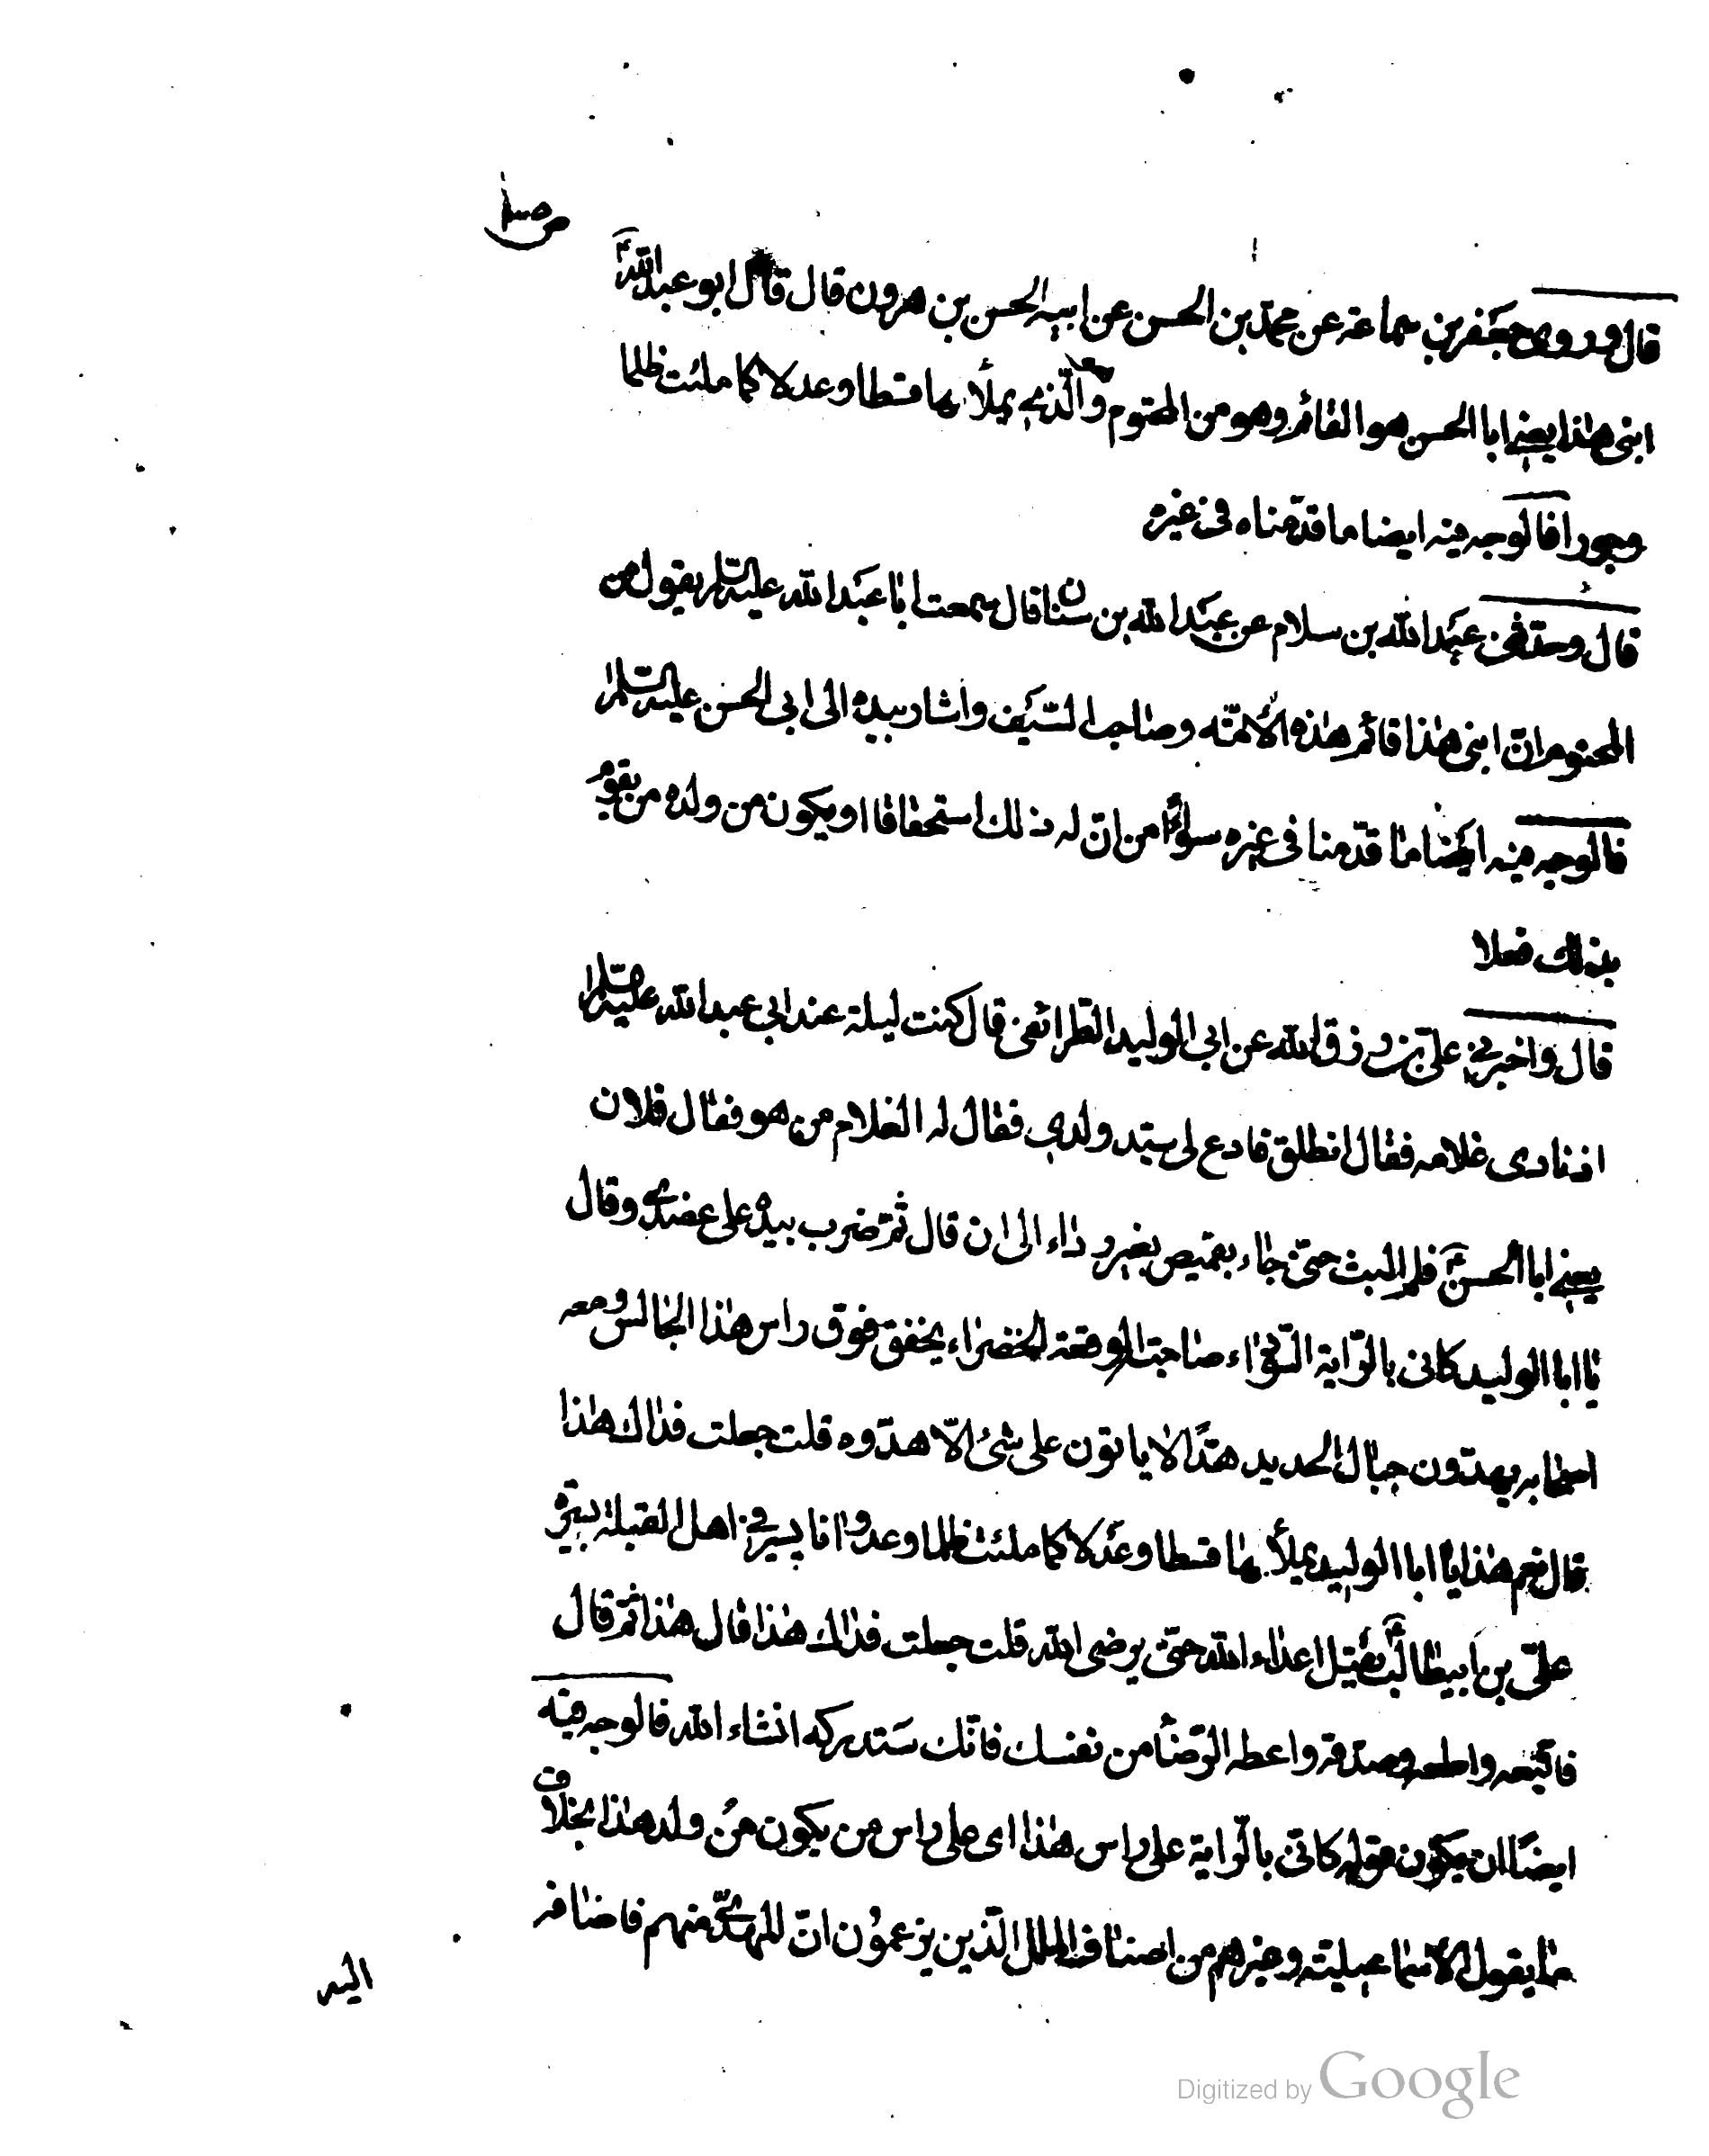 قال وروى جعفر بن سماعة عن محمد بن الحسن عن ابيه الحسن بن هرون قال قال ابو عبدالله ؑ
ابنى هذا يعنى ابا الحسن هو القائم وهو من المحتوم والّذي يملأ ها قسطا وعدلا كما ملئت ظلما
وجورا فالوجه فيه ايضا ما قدّمناه فى غيره
قال وحدثنى عبد الله بن سلام عن عبد الله بن سنان قال سمعت ابا عبد الله عليه السّلم يقول من
المحتوم انّ ابنى هذا قائم هذه الأمّة وصاحب السّيف واشار بيده الى ابى الحسن عليه السّلم
فالوجه فيه ايضا ما قدّمنا فى غيره سواء من انّ له ذلك استحقاقا او يكون من ولده من يقوم
بذلك فعلا
قال واخبرنى علىّ بن رزق الله عن ابى الوليد الطرائفى قال كنت ليلة عند ابى عبد الله عليه السّلم
اذ نادى غلامه فقال انطلق فادع لى سيّد ولدي فقال له الغلام من هو فقال فلان
يعنى ابا الحسن ؑ فلم البث حتّى جاء بقميص بغير رداء الى ان قال ثمّ ضرب بيده على عضدي وقال
يا ابا الوليد كانى بالرّاية السّوداء صاحبة الرقعة الخضراء يخفق فوق راس هذا الجالس ومعه
اصحابه يهدّون جبال الحديد هدّا لا ياتون على شئ الّا هدّوه قلت جعلت فداك هذا
قال نعم هذا يا ابا الوليد يملأ ها قسطا وعدلا كما ملئت ظلما وعدوانا يسير فى اهل القبلة بسيرة
علىّ بن ابيطالب ؑ يقتل اعداء الله حتّى يرضى الله قلت جعلت فداك هذا قال هذا ثمّ قال
فاتّبعه واطعه وصدّقه واعطه الرّضا من نفسك فانّك ستدركه انشاء الله فالوجه فيه
ايضا ان يكون قوله كانّى بالرّاية على راس هذا اى على راس من يكون من ولد هذا بخلاف
ما يقول الأسماعيلية وغيرهم من اصناف الملل الّذين يزعمون انّ المهدىّ منهم فاضافه
اليه
Digitized by Google